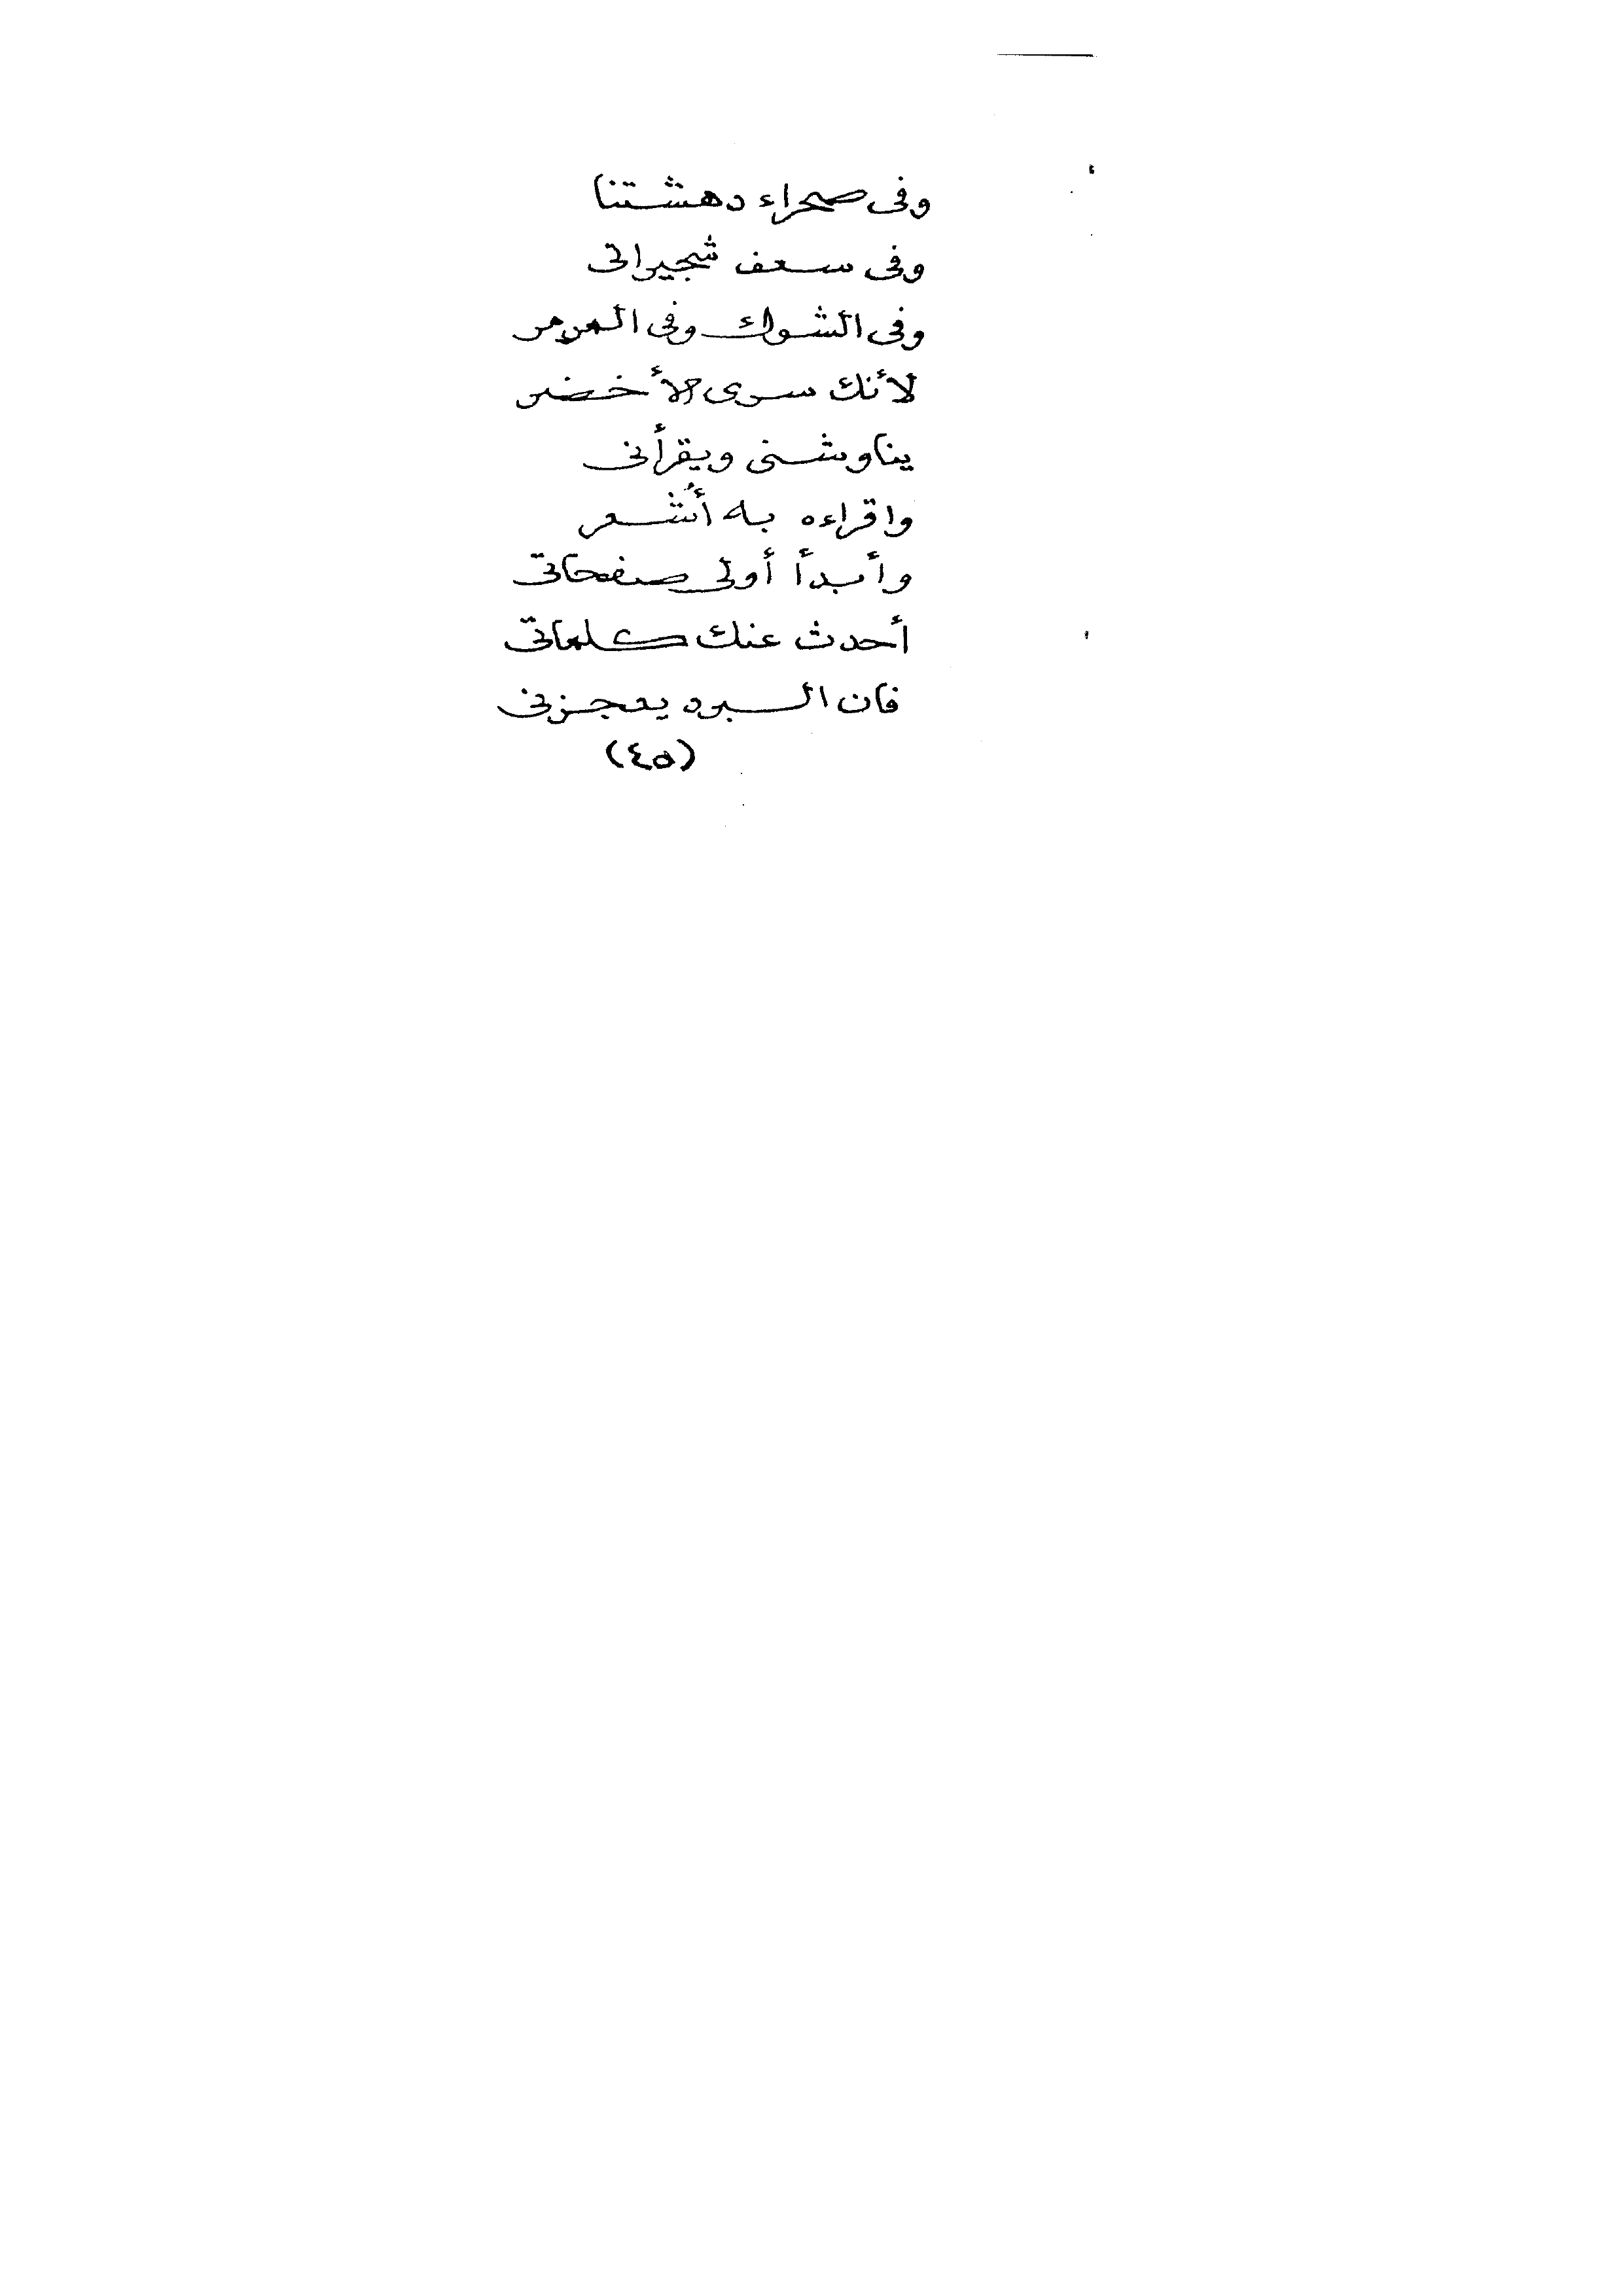 وفى صحراء دهشتنا
وفى سعف شجيراتى
وفى الشوك وفى المرمر
لأنك سرى الأخضر
يناوشنى ويقرأنى
واقراءه به أشعر
وأبدأ أولى صفحاتى
أحدث عنك كلماتى
فان السرد يعجزنى
(٤٥)